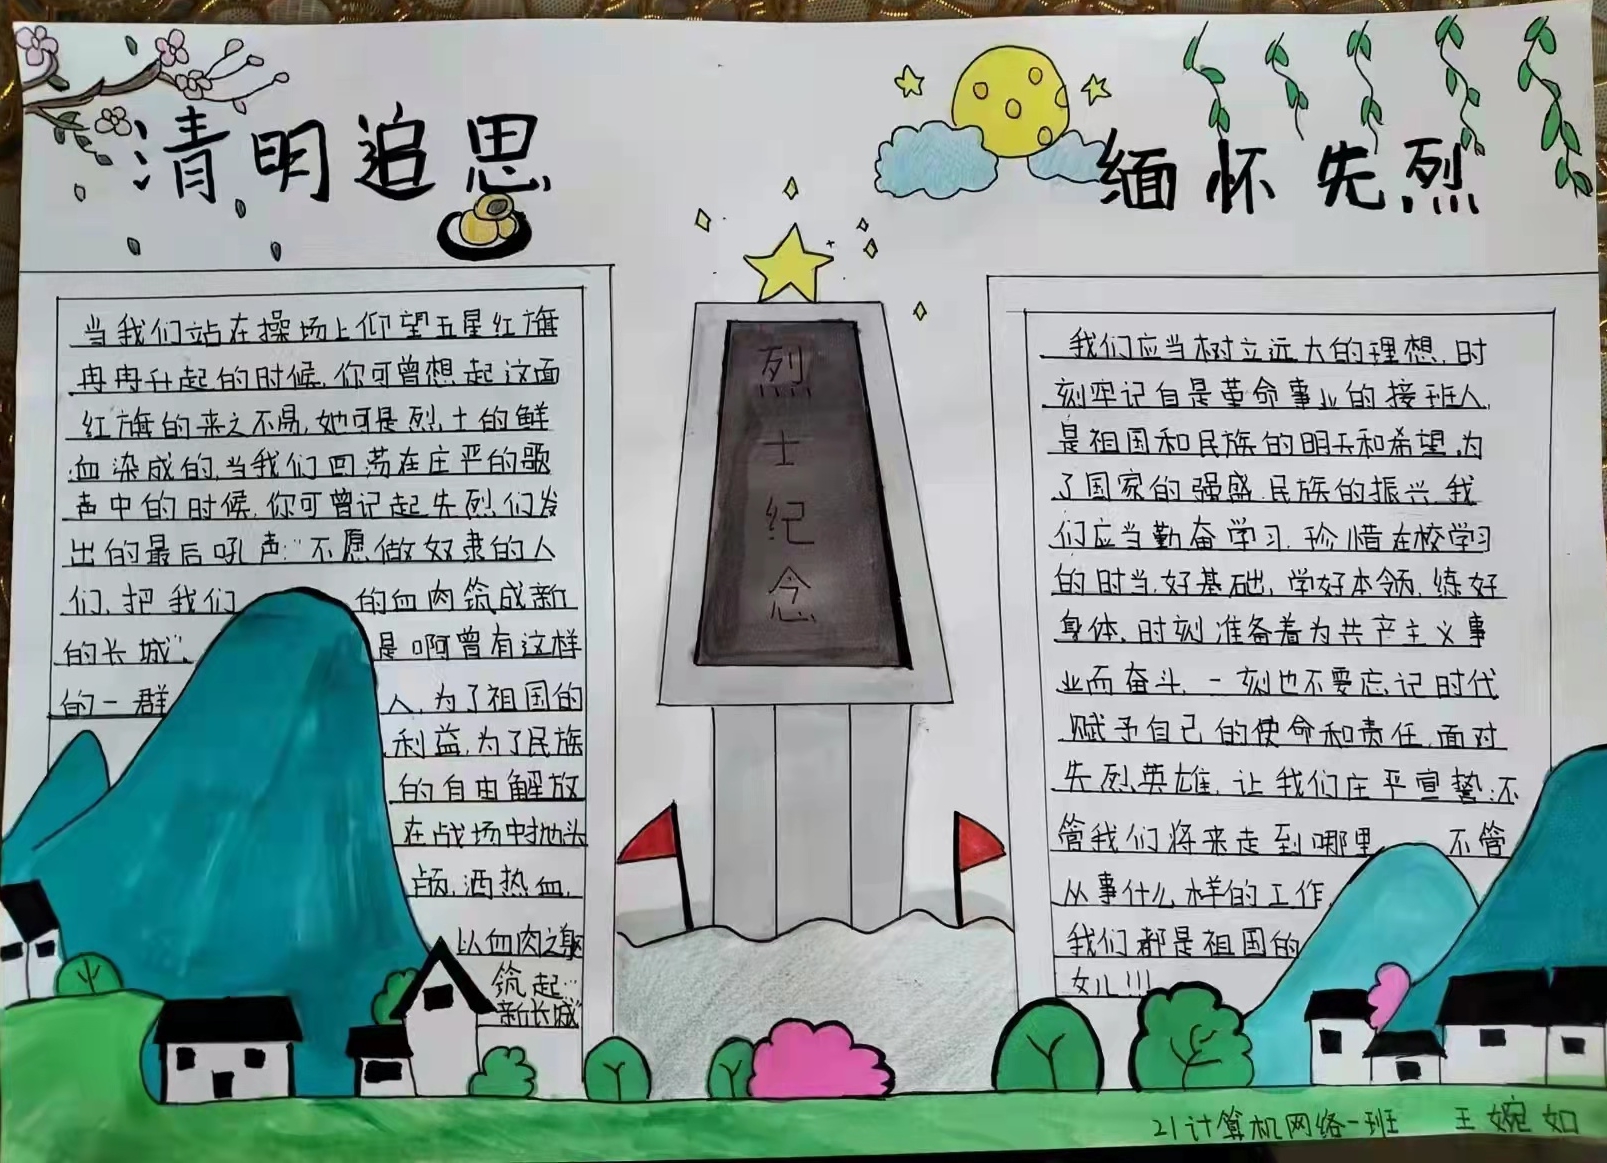 清明追思
缅怀先烈
当我们站在操场上仰望五星红旗
冉冉升起的时候,你可曾想起这面
红旗的来之不易,她可是烈士的鲜
血染成的,当我们回荡在庄严的歌
声中的时候,你可曾记起先烈们发
出的最后吼声:“不愿做奴隶的人
们,把我们的血肉筑成新
的长城”,是啊曾有这样
的一群人,为了祖国的
利益,为了民族
的自由解放
在战场中抛头
颅,洒热血,
以血肉之躯
筑起“
新长城”
烈
士
纪
念
我们应当树立远大的理想,时
刻牢记自是革命事业的接班人,
是祖国和民族的明天和希望,为
了国家的强盛,民族的振兴,我
们应当勤奋学习,珍惜在校学习
的时当,好基础,学好本领,练好
身体,时刻准备着为共产主义事
业而奋斗,一刻也不要忘记时代
赋予自己的使命和责任,面对
先烈英雄,让我们庄平宣誓:不
管我们将来走到哪里,不管
从事什么样的工作,
我们都是祖国的
女儿!!!
21计算机网络一班 王婉如